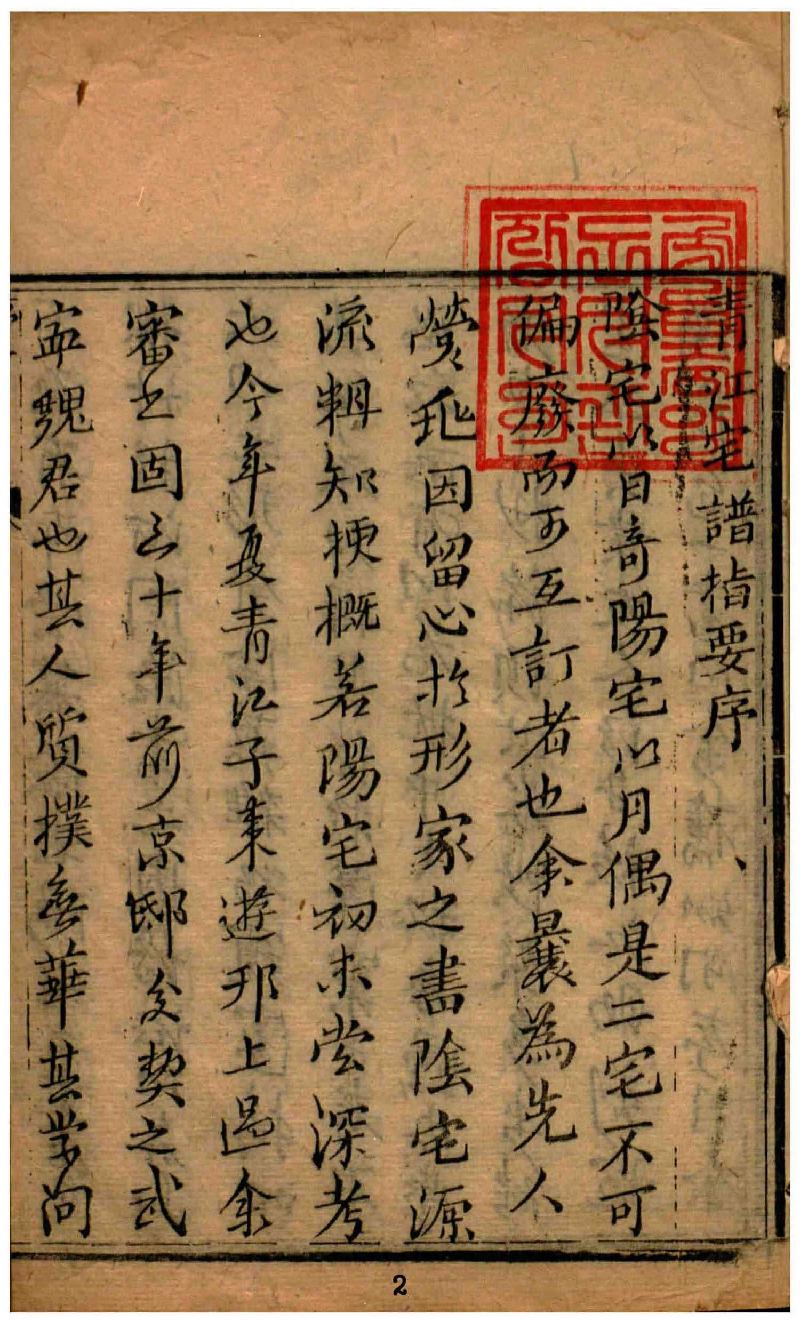 青江宅譜指要序
陰宅以日奇陽宅以月偶是二宅不可
偏廢而可互訂者也余曩為先人
塋兆因留心於形家之書陰宅源
流輯知梗概若陽宅初未嘗深考
也今年夏青江子來遊邗上過余
審之固三十年前京邸交契之武
寧魏君也其人質樸無華其學問
2